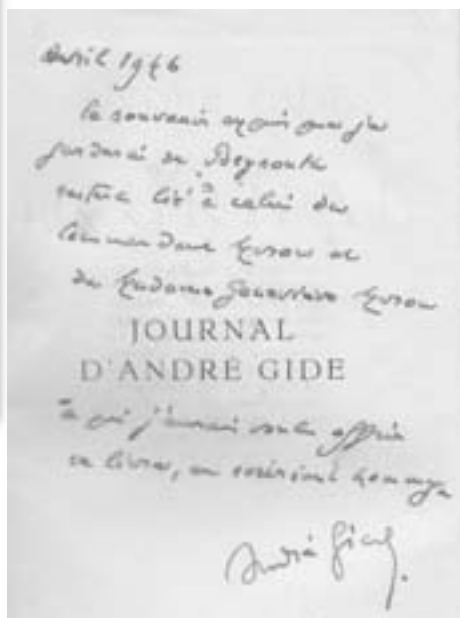 Avril 1946
le souvenir exquis que je
garderai de Beyrouth
restera lié à celui du
Commandant et
de Madame Geneviève
JOURNAL
D'ANDRÉ GIDE
à qui j'aurais voulu offrir
ce livre, en hommage
André Gide.